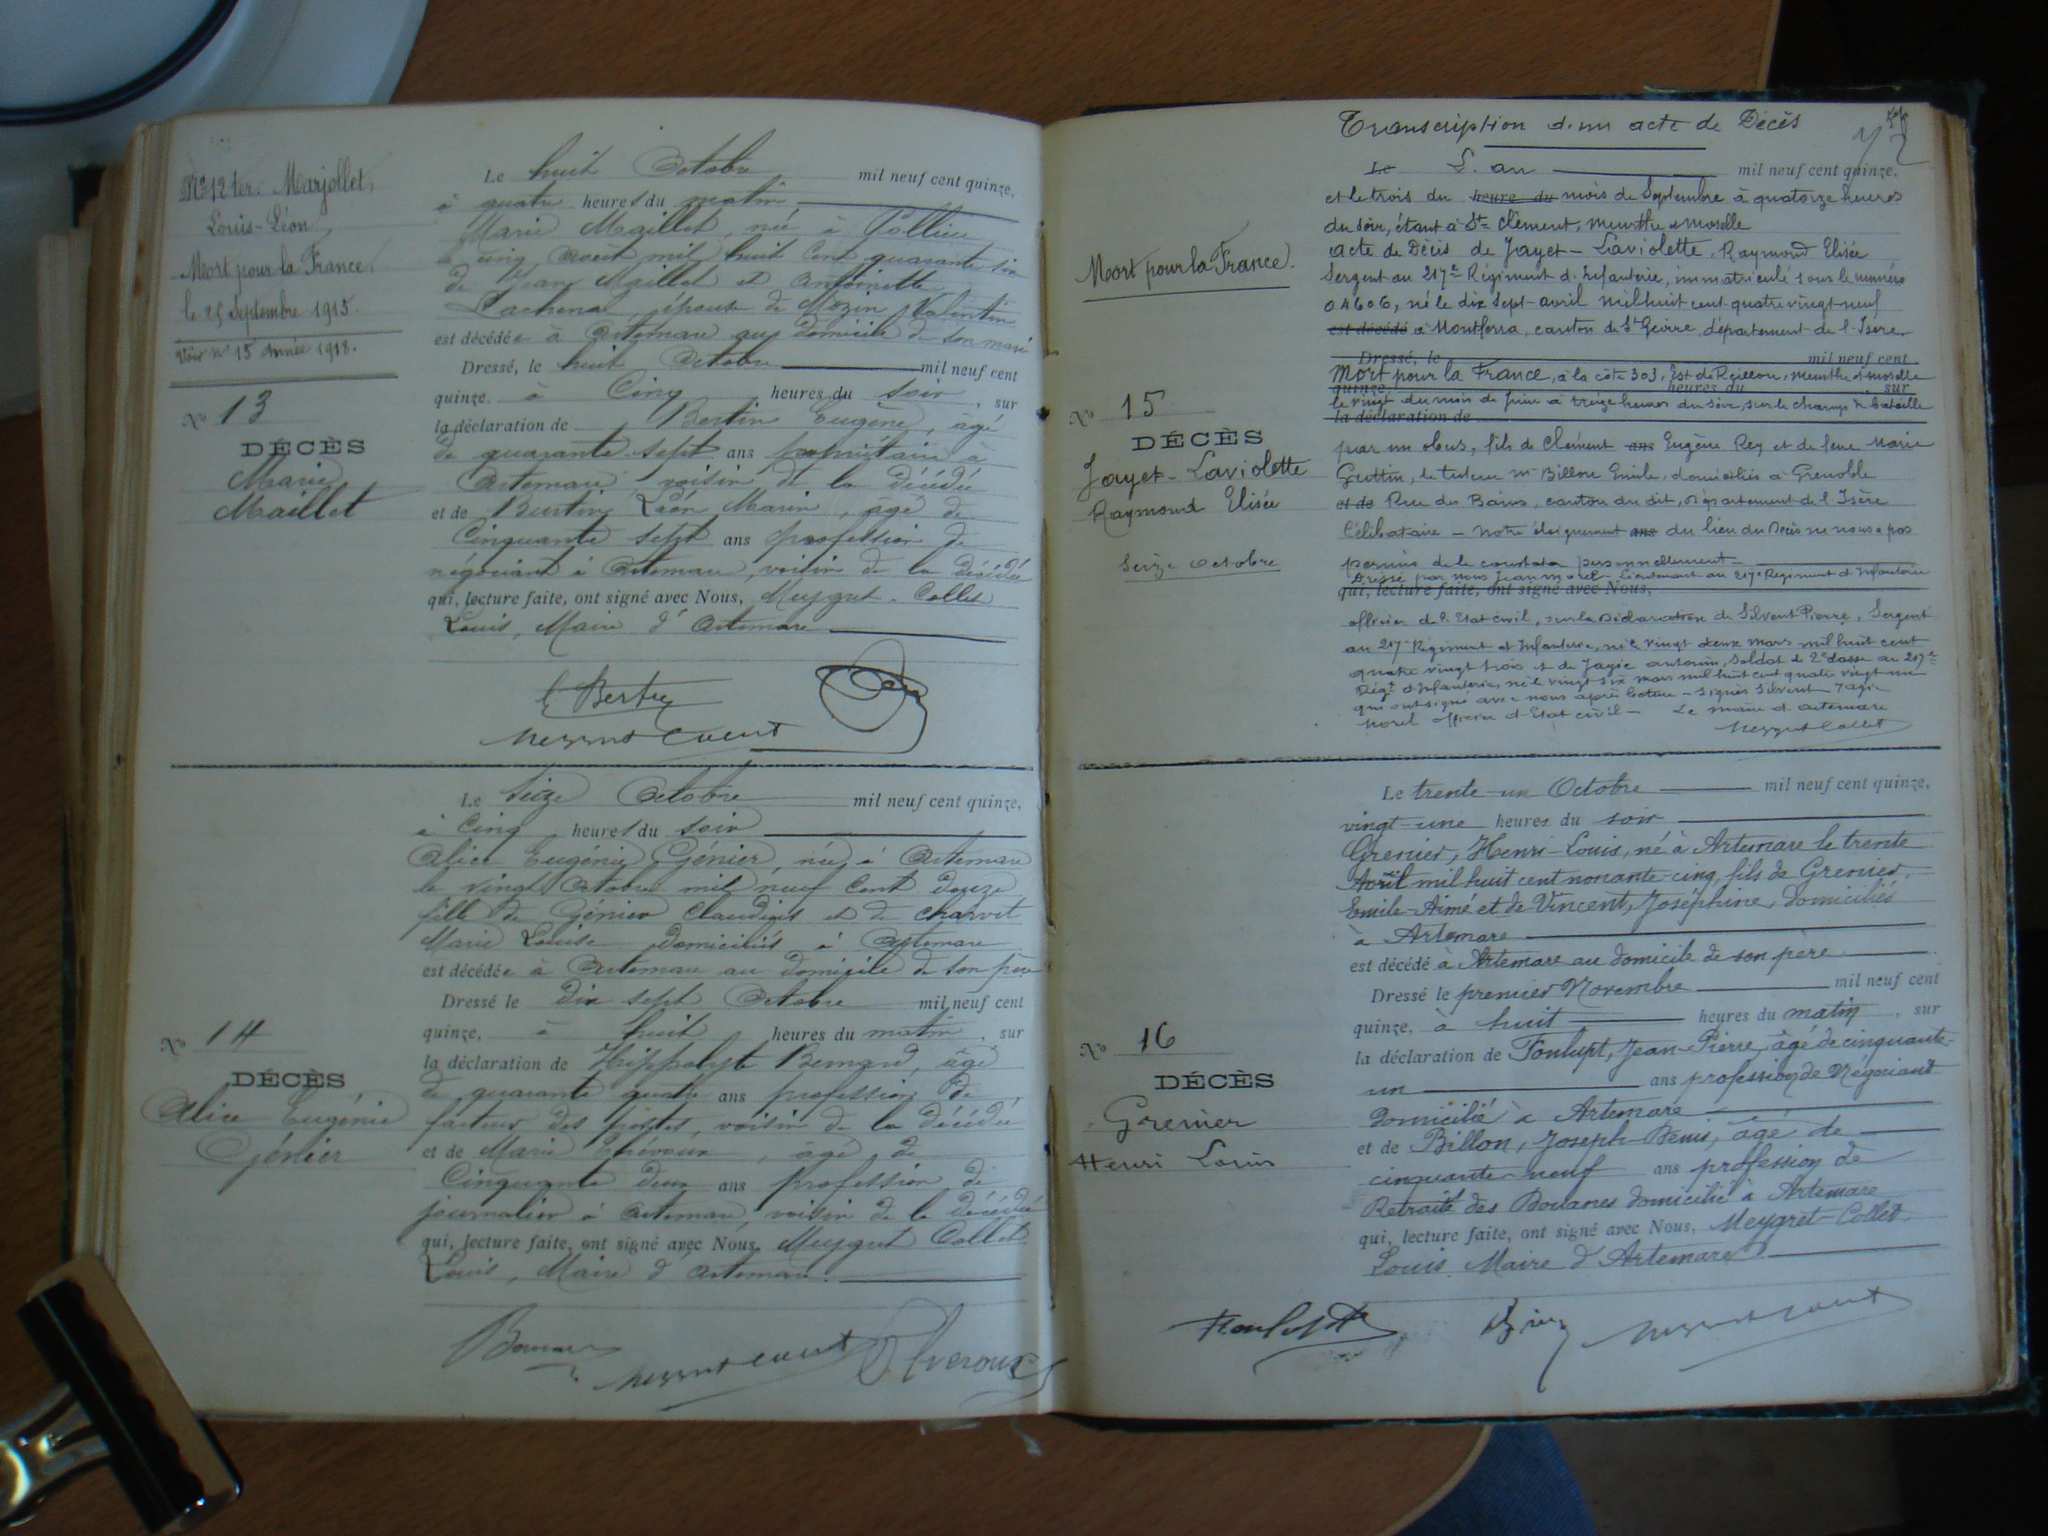 No 12 ter. Marjollet,
Louis-Léon,
Mort pour la France,
le 25 Septembre 1915.
Voir n° 15 année 1918.
No 13
DÉCÈS
Marie
Maillet
Le huit Octobre mil neuf cent quinze,
à quatre heures du matin
Marie Maillet, née à Pollieu
le cinq Août mil huit cent quarante six
de Jean Maillet et Antoinette
Lachenal, épouse de Mozin Valentin
est décédée à Artemare au domicile de son mari
Dressé, le huit Octobre mil neuf cent
quinze. à Cinq heures du soir, sur
la déclaration de Bertin Eugène, âgé
de quarante sept ans propriétaire à
Artemare voisin de la décédée
et de Burtin Léon Marin, âgé de
Cinquante sept ans profession de
négociant à Artemare, voisin de la décédée
qui, lecture faite, ont signé avec Nous, Meygret-Collet
Louis, Maire d'Artemare
No 14
DÉCÈS
Alice Eugénie
Génier
Le seize Octobre mil neuf cent quinze,
à Cinq heures du soir
Alice Eugénie Génier, née à Artemare
le vingt Octobre mil neuf cent douze
fille de Génier Claudius et de Charvet
Marie Louise domiciliés à Artemare
est décédée à Artemare au domicile de son père
Dressé le dix sept Octobre mil neuf cent
quinze, à huit heures du matin, sur
la déclaration de Hippolyte Bernard, âgé
de quarante quatre ans profession de
facteur des postes, voisin de la décédée
et de Marie, âgé de
Cinquante deux ans profession de
journalier à Artemare, voisin de la décédée
qui, lecture faite, ont signé avec Nous, Meygret Collet
Louis, Maire d'Artemare.
Transcription d'un acte de Décès
Mort pour la France.
No 15
DÉCÈS
Jayet-Laviolette
Raymond Elisée
Seize octobre
Le L'an mil neuf cent quinze,
et le trois du heure du mois de Septembre à quatorze heures
du soir, étant à St Clément, Meurthe et Moselle
acte de Décès de Jayet-Laviolette, Raymond Elisée
Sergent au 217e Régiment d'Infanterie, immatriculé sous le numéro
04606, né le dix sept avril mil huit cent quatre vingt neuf
est décédé à Montferra, canton de St Geoire, département de l'Isère
Dressé, le mil neuf cent
Mort pour la France, à la côte 303, Est de Reillon, Meurthe et Moselle
quinze, heures du sur
le vingt du mois de Juin à treize heures du soir, sur le champ de bataille
la déclaration de
par un obus, fils de Clément ans Eugène Rey et de feue Marie
Guttin, le tuteur Mr Billon Emile, domiciliés à Grenoble
et de Rue des Bains, canton du dit, département de l'Isère
Célibataire – Notre éloignement ans du lieu du Décès ne nous a pas
permis de le constater personnellement
Dressé par nous Jean Morel – Lieutenant au 217e Régiment d'Infanterie
qui, lecture faite, ont signé avec Nous,
officier de l'Etat civil, sur la Déclaration de Silvent Pierre, Sergent
au 217e Régiment d'Infanterie, né le vingt deux mars mil huit cent
quatre vingt trois et de Jagie antonin, soldat de 2e classe au 217e
Régt d'Infanterie, né le vingt six mars mil huit cent quatre vingt un
qui ont signé avec nous après lecture – Signés Silvent Jagie
Morel officier d'Etat civil – Le maire d'artemare
Meygret Collet
No 16
DÉCÈS
Grenier
Henri Louis
Le trente-un Octobre mil neuf cent quinze,
vingt-une heures du soir
Grenier, Henri-Louis, né à Artemare le trente
Avril mil huit cent nonante-cinq, fils de Grenier,
Emile-Aimé et de Vincent, Joséphine, domiciliés
à Artemare
est décédé à Artemare au domicile de son père
Dressé le premier Novembre mil neuf cent
quinze, à huit heures du matin, sur
la déclaration de Fonlupt, Jean-Pierre, âgé de cinquante-
un ans profession de Négociant
Domicilié à Artemare
et de Billon, Joseph-Denis, âgé de
cinquante-neuf ans profession de
Retraité des Douanes domicilié à Artemare
qui, lecture faite, ont signé avec Nous, Meygret-Collet
Louis Maire d'Artemare